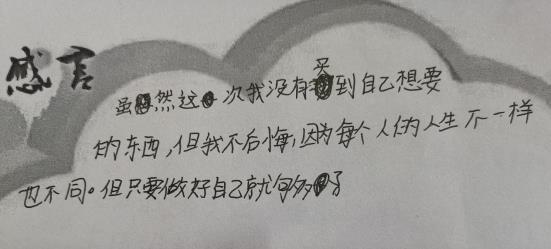 感言
虽然这次我没有买到自己想要
的东西,但我不后悔,因为每个人的人生不一样
也不同。但只要做好自己就够了